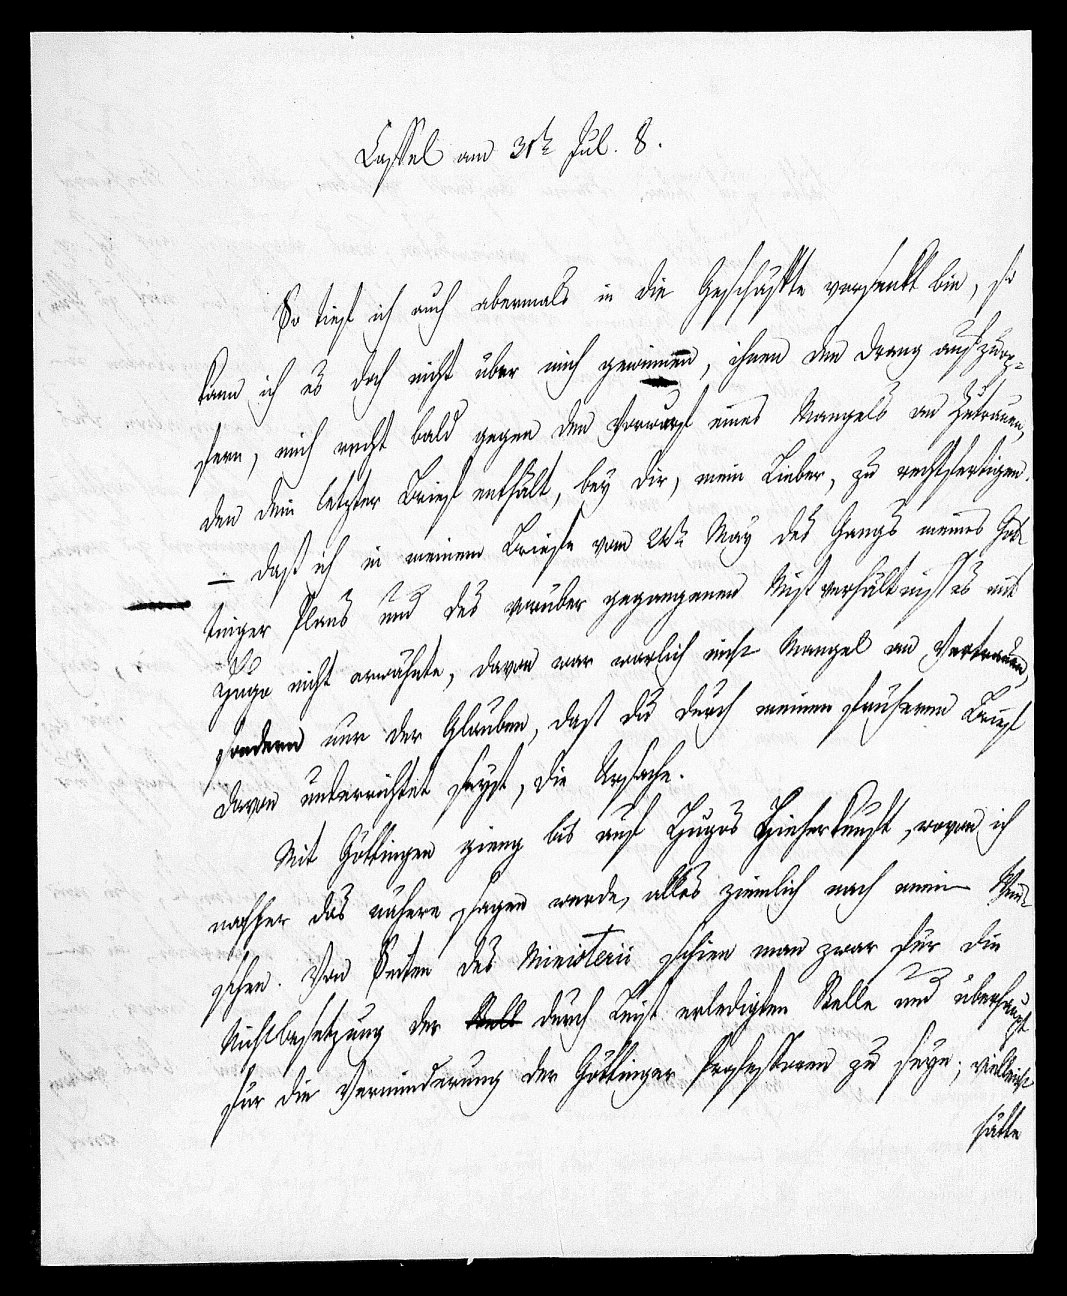 Cassel am 31t Jul. 8.
So tief ich auch abermals in die Geschäffte versenkt bin, so
kann ich es doch nicht über mich gewinnen, ihnen den Drang aufzuop-
fern, mich recht bald gegen den Vorwurf eines Mangels an Zutrauen,
den dein letzter Brief enthält, bey dir, mein Lieber, zu rechtfertigen.
– Daß ich in meinem Briefe vom May des Gangs meines Göt-
tinger Plans und des vorüber gegangenen Mißverhältnisses mit
Hugo nicht erwähnte, davon war warlich nicht Mangel an Vertrauen,
sondern nur der Glauben, daß du durch meinen früheren Brief
davon unterrichtet seyst, die Ursache.
Mit Göttingen gieng bis auf Hugos Hieherkunft, wovon ich
nachher das nähere sagen werde, alles ziemlich nach mein Wun-
schen. Von Seiten des Ministerii schien man zwar für die
Nichtbesetzung der Stelle durch Leist erledigten Stelle und überhaupt
für die Verminderung der Göttinger Professoren zu seyn; vielleicht
hätte